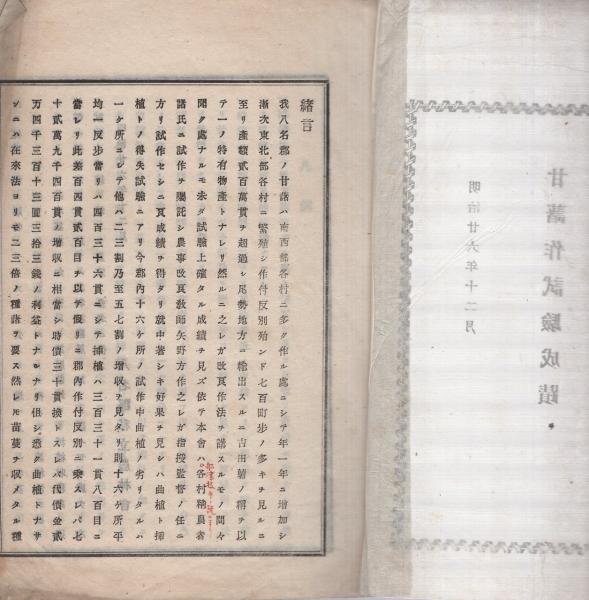 甘藷作試驗成蹟
明治廿六年十二月
緒言
我八名郡ノ甘藷ハ南西部各村ニ多ク作ル處ニシテ年一年ニ增加シ
漸次東北部各村ニ繁殖シ作付反別殆ンド七百町步ノ多キヲ見ルニ
至リ產額貳百萬貫ヲ超過シ尾勢地方ニ輸出スルニ吉田藷ノ稱ヲ以
テ一ノ特有物產トナレリ然ルニ之レガ改良作法ヲ講スルモノ間々
聞ク處ナルモ未ダ試驗上確タル成績ヲ見ズ依テ本會ハ各村精農者
諸氏ニ試作ヲ囑託シ農事改良敎師矢野方作之レガ指授監督ノ任ニ
方リ試作セシニ頁成績ヲ得タリ就中著シキ好果ヲ見シハ曲植ト揷
植トノ得失試驗ニアリ今郡內十六ケ所ノ試作中曲植ノ劣リタルハ
一ケ所ニシテ他ハ二三割乃至五七割ノ增收ヲ見タリ則十六ケ所平
均一反步當リハ四百三十六貫ニシテ揷植ハ三百三十一貫八百目ニ
當レリ此差百四貫貳百目ヲ以テ假リニ郡內作付反別ニ乘スレバ七
十貳萬九千四百貫ノ增收ニ相當シ時價三十貫換トスレバ代價金貳
万四千三百十三圓三拾三錢ノ利益トナルナリ但シ悉ク曲植トナサ
ンニハ在來法ヨリモ二三倍ノ種藷ヲ要ス然レモ苗蔓ヲ收メタル種